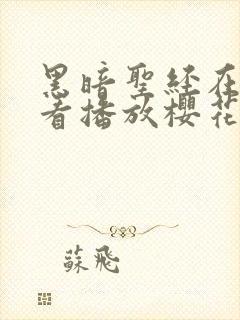 黑暗聖經在
看播放櫻花
蘇飛